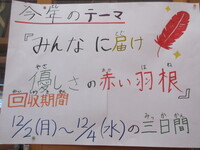 今年のテーマ
『みんなに届け
優しさの赤い羽根』
回収期間
12/2(月)～12/4(水)の三日間